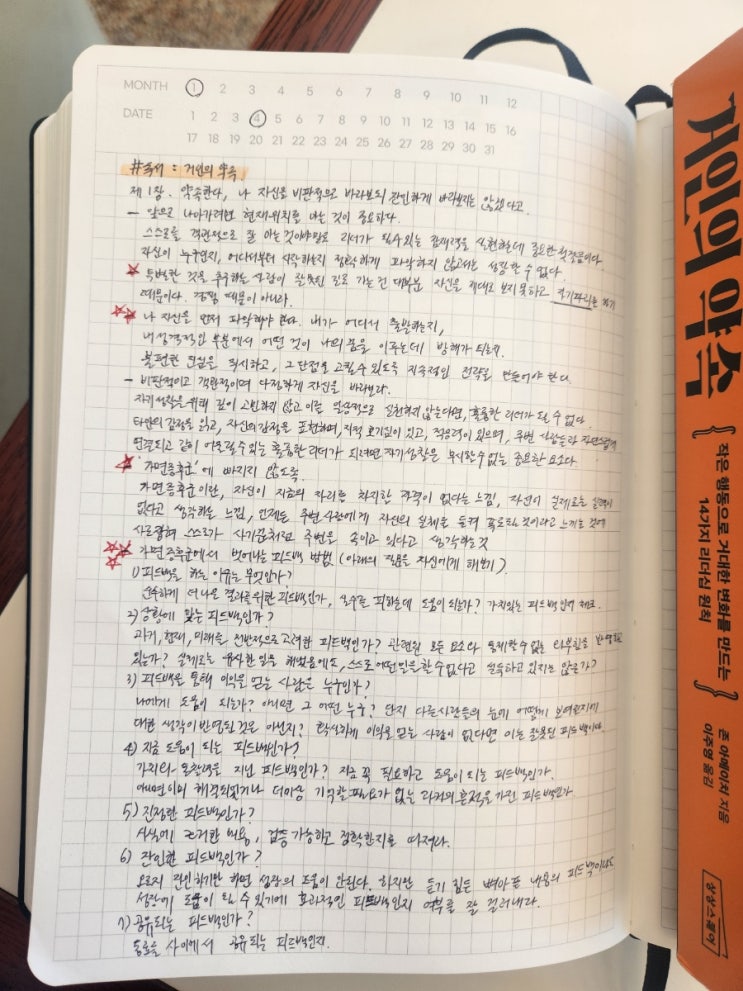 MONTH 1 2 3 4 5 6 7 8 9 10 11 12
DATE 1 2 3 4 5 6 7 8 9 10 11 12 13 14 15 16
17 18 19 20 21 22 23 24 25 26 27 28 29 30 31
#독서 : 거인의 약속.
제 1장. 약속한다, 나 자신을 비판적으로 바라보되 잔인하게 바라보지는 않겠다고.
- 앞으로 나아가려면 현재위치를 아는 것이 중요하다.
스스로를 객관적으로 잘 아는 것이야말로 리더가 될 수 있는 잠재력을 실현하는데 중요한 첫걸음이다.
자신이 누구인지, 어디서부터 시작하는지 정확하게 파악하지 않고서는 성장할 수 없다.
특별한 것을 추구하는 사람이 잘못된 길로 가는 건 대부분 자신을 제대로 보지 못하고 하기
때문이다. 경험 때문이 아니라.
나 자신을 먼저 파악해야 한다. 내가 어디서 출발하는지,
내 성격적인 부분에서 어떤 것이 나의 꿈을 이루는데 방해가 되는지.
불편한 진실을 직시하고, 그 단점을 고칠 수 있도록 지속적인 전략을 만들어야 한다.
- 비판적이고 객관적이며 다정하게 자신을 바라보라.
자기성찰을 위해 깊이 고민하지 않고 이를 열성적으로 실천하지 않는다면, 훌륭한 리더가 될 수 없다.
타인의 감정을 읽고, 자신의 감정을 표현하며, 지적 호기심이 있고, 적응력이 있으며, 주변 사람들과 자연스럽게
연결되고 같이 어울릴 수 있는 훌륭한 리더가 되려면 자기성찰은 무시할 수 없는 중요한 요소다.
'가면증후군'에 빠지지 않도록
가면증후군이란, 자신이 지금의 자리를 차지할 자격이 없다는 느낌, 자신이 실제로는 실력이
없다고 생각하는 느낌, 언젠든 주변 사람에게 자신의 실체를 들켜 폭로될 것이라고 느끼는 것에
사로잡혀 스스로가 사기꾼처럼 주변을 속이고 있다고 생각하는 것
가면증후군에서 벗어나는 피드백 방법 (아래의 질문을 자신에게 해보기)
1) 피드백을 하는 이유는 무엇인가?
단순하게 더 나은 결과를 위한 피드백인가, 실수를 피하는데 도움이 되는가? 가치있는 피드백인지 체크.
2) 상황에 맞는 피드백인가?
과거, 현재, 미래를 전반적으로 고려한 피드백인가? 관련된 모든 요소와 통제할 수 없는 외부환경을 반영하고
있는가? 실제로는 유사한 일을 해냈음에도, 스스로 어떤 일을 할 수 없다고 설득하고 있지는 않은가?
3) 피드백을 통해 이익을 얻는 사람은 누구인가?
나에게 도움이 되는가? 아니면 그 어떤 누구? 단지 다른사람들의 눈에 어떻게 보여질지에
대한 생각이 반영된 것은 아닌지? 확실하게 이익을 얻는 사람이 없다면 이는 잘못된 피드백이다.
4) 지금 도움이 되는 피드백인가?
가치와 통찰력을 지닌 피드백인가? 지금 꼭 필요하고 도움이 되는 피드백인가.
아니면 이미 해결되었거나 더이상 기억할 필요가 없는 과거의 흔적을 가진 피드백인가.
5) 진정한 피드백인가?
사실에 근거한 내용, 검증 가능하고 정확한지를 따져라.
6) 잔인한 피드백인가?
오로지 잔인하기만 하면 성장의 도움이 안된다. 하지만 듣기 힘든 뼈아픈 내용의 피드백이라도
성장에 도움이 될 수 있기에 효과적인 피드백인지 여부를 잘 걸러내라.
7) 공유되는 피드백인가?
동료들 사이에서 공유되는 피드백인지.
거인의 약속
작은 행동으로 거대한 변화를 만드는
14가지 리더십 원칙
존 아메이치 지음
이주영 옮김
상상스퀘어